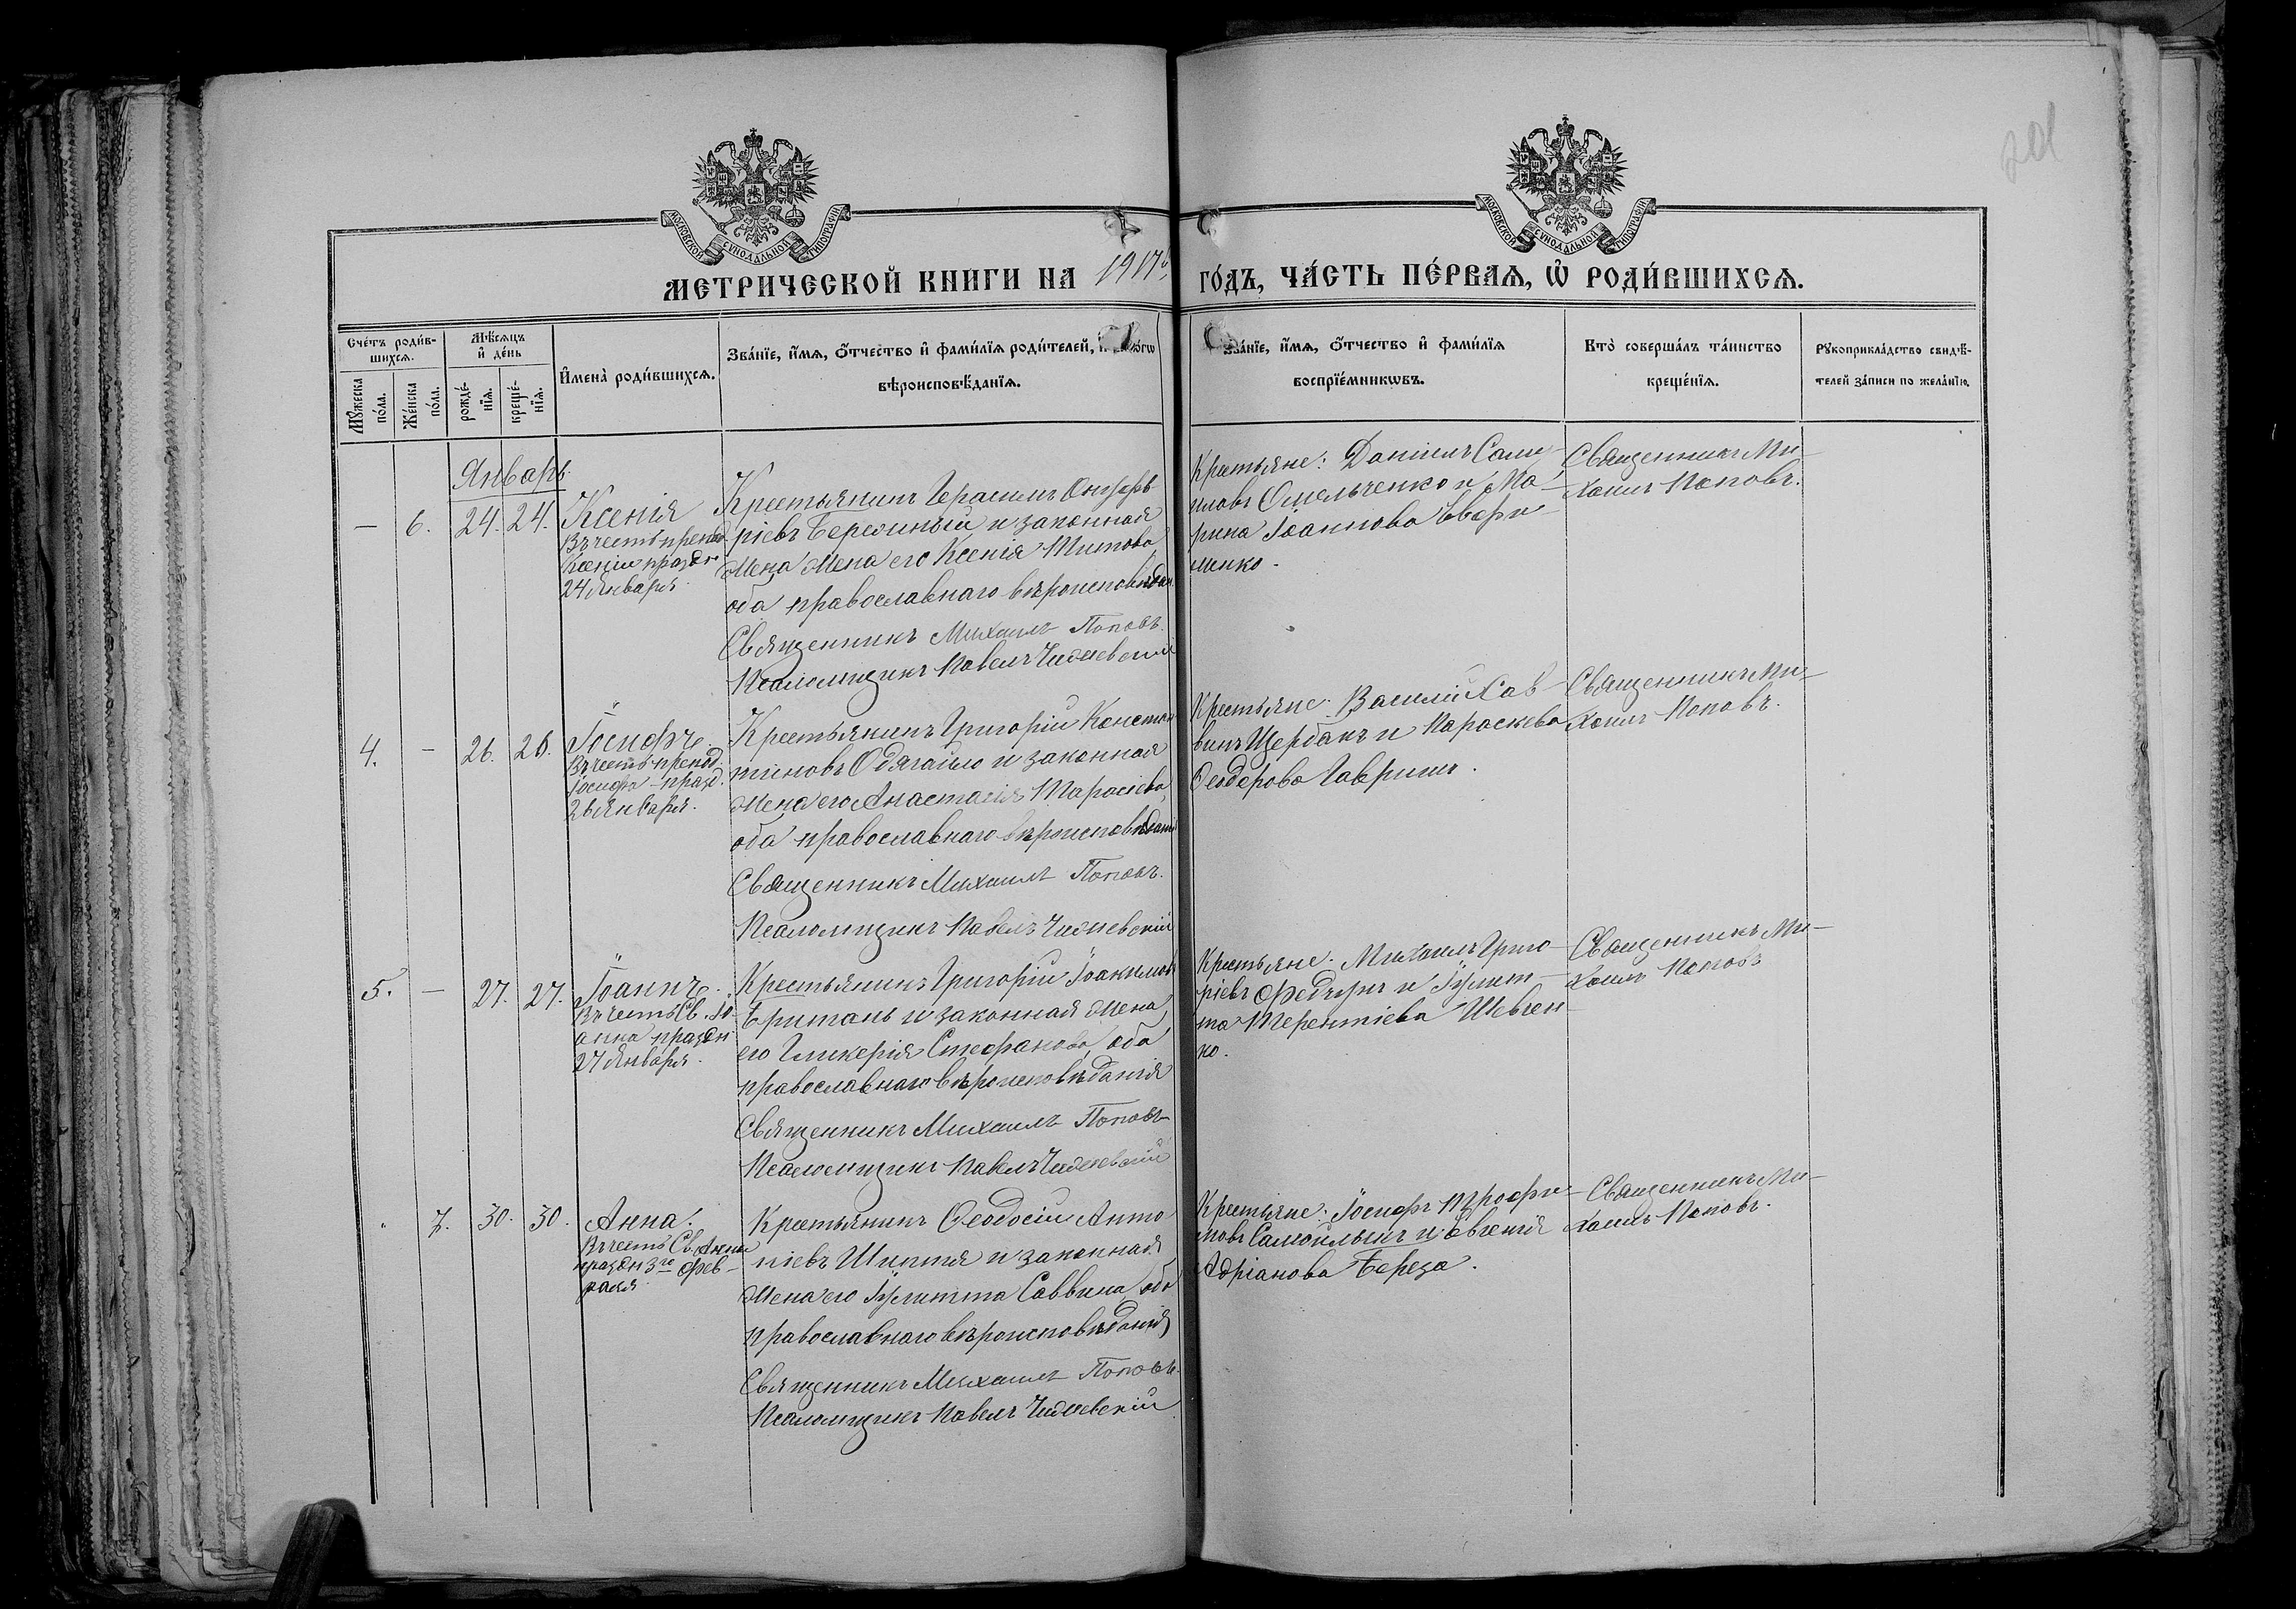 201
МОСКОВСКОЙ СУНОДАЛЬНОЙ ТИПОГРАФІИ
МОСКОВСКОЙ СУНОДАЛЬНОЙ ТИПОГРАФІИ
МЕТРИЧЕСКОЙ КНИГИ НА 1917й ГО́ДЪ, ЧА́СТЬ ПЕ́РВАѦ, Ѡ҆ РОДИ́ВШИХСѦ.
Сче́тъ роди́в-
шихсѧ.
Мꙋжеска
по́ла.
Же́нска
по́ла.
Мѣ́сѧцъ
и҆ де́нь
рожде́-
нїѧ.
креще́-
нїѧ.
И҆мена̀ роди́вшихсѧ.
Зва́нїе, и҆́мѧ, ѻ҆́тчество и҆ фами́лїѧ роди́телей,
вѣроисповѣ́данїѧ.
Зва́нїе, и҆́мѧ, ѻ҆́тчество и҆ фами́лїѧ
воспрїе́мникѡвъ.
Кто̀ соверша́лъ та́инство
креще́нїѧ.
Рꙋкоприкла́дство свидѣ́-
телей за́писи по жела́нїю.
Январь.
— 6. 24. 24.
Ксенія
Въ честь препод.
Ксеніи праздн
24 Января.
Крестьянинъ Герасимъ
ріевъ и законная
жена жена его Ксенія Титова
оба православнаго вѣроисповѣдан
Священникъ Михаилъ Поповъ.
Псаломщикъ Павелъ Чижевскій
Крестьяне: Даніилъ Саму-
иловъ Омельченко и Ма-
рина Іоаннова
ненко.
Священникъ Ми-
хаилъ Поповъ.
4. — 26. 26.
Іосифъ.
Въ честь препод.
Іосифа празд.
26 Января.
Крестьянинъ Григорій Констан
тиновъ Одягайло и законная
жена его Анастасія Тарасіева,
оба православнаго вѣроисповѣдані
Священникъ Михаилъ Поповъ.
Псаломщикъ Павелъ Чижевскій
Крестьяне: Василій Сав-
винъ Щербакъ и Параскева
Ѳеодорова Гавришъ.
Священникъ Ми-
хаилъ Поповъ.
5. — 27. 27.
Іоаннъ.
Въ честь Св. Іо-
анна праздн
27 Января.
Крестьянинъ Григорій Іоакимовъ
Британь и законная жена
его Гликерія Стефанова, оба
православнаго вѣроисповѣданія
Священникъ Михаилъ Поповъ
Псаломщикъ Павелъ Чижевскій
Крестьяне: Михаилъ Григо-
ріевъ и Іулит-
та Терентіева Шевчен-
ко.
Священникъ Ми-
хаилъ Поповъ
7. 30. 30.
Анна.
Въ честь Св. Анны
праздн 3го Фев-
раля
Крестьянинъ Ѳеодосій Анто
ніевъ Шкитя и законная
жена его Іулитта Саввина оба
православнаго вѣроисповѣданія
Священникъ Михаилъ Поповъ.
Псаломщикъ Павелъ Чижевскій
Крестьяне: Іосифъ Трофи-
мовъ Самойлыкъ и Евгенія
Адріанова Береза.
Священникъ Ми-
хаилъ Поповъ.